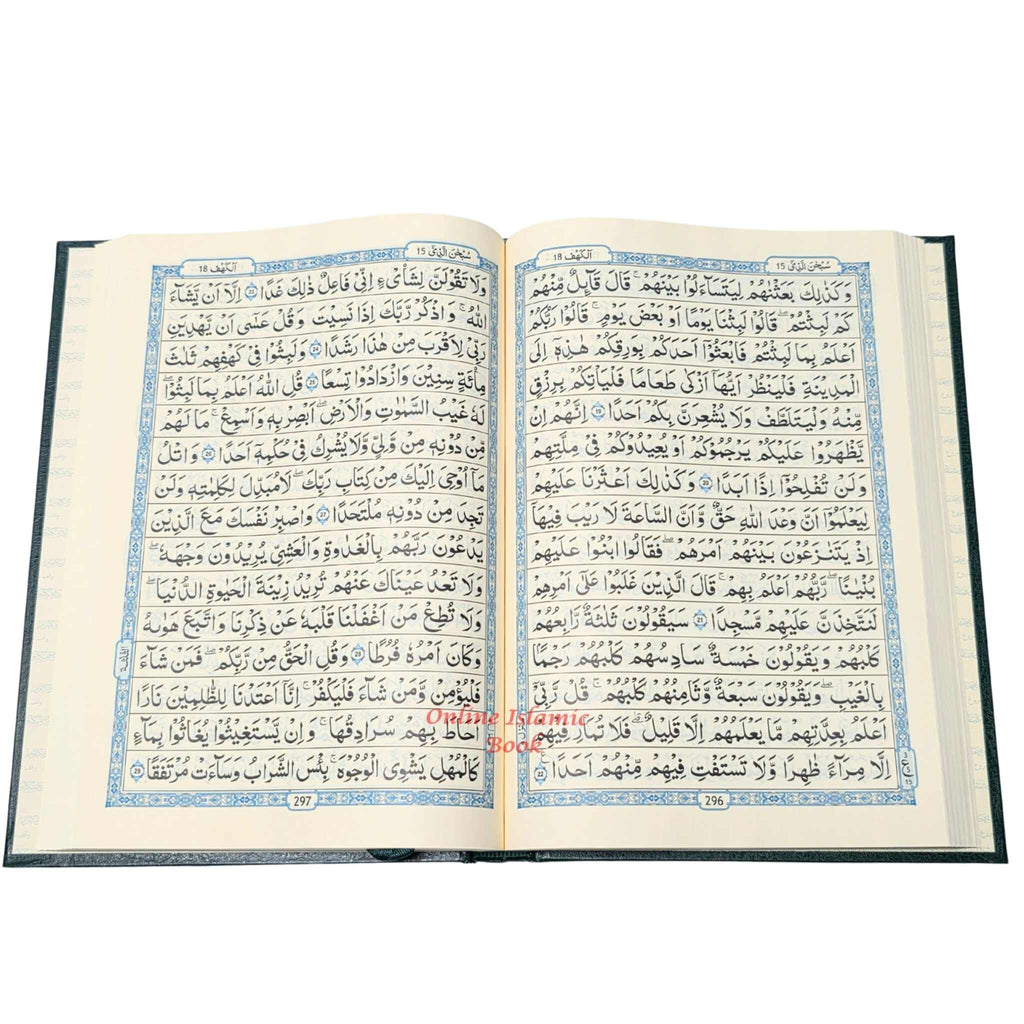 سُبْحٰنَ الَّذِىْٓ 15
اَلْكَهْف 18
وَكَذٰلِكَ بَعَثْنٰهُمْ لِيَتَسَآءَلُوْا بَيْنَهُمْ ؕ قَالَ قَآئِلٌ مِّنْهُمْ
كَمْ لَبِثْتُمْ ؕ قَالُوْا لَبِثْنَا يَوْمًا اَوْ بَعْضَ يَوْمٍ ؕ قَالُوْا رَبُّكُمْ
اَعْلَمُ بِمَا لَبِثْتُمْ فَابْعَثُوْۤا اَحَدَكُمْ بِوَرِقِكُمْ هٰذِهٖۤ اِلَى
الْمَدِيْنَةِ فَلْيَنْظُرْ اَيُّهَاۤ اَزْكٰى طَعَامًا فَلْيَاْتِكُمْ بِرِزْقٍ
مِّنْهُ وَلْيَتَلَطَّفْ وَلَا يُشْعِرَنَّ بِكُمْ اَحَدًا 19 اِنَّهُمْ اِنْ
يَّظْهَرُوْا عَلَيْكُمْ يَرْجُمُوْكُمْ اَوْ يُعِيْدُوْكُمْ فِىْ مِلَّتِهِمْ
وَلَنْ تُفْلِحُوْۤا اِذًا اَبَدًا 20 وَكَذٰلِكَ اَعْثَرْنَا عَلَيْهِمْ
لِيَعْلَمُوْۤا اَنَّ وَعْدَ اللّٰهِ حَقٌّ وَّاَنَّ السَّاعَةَ لَا رَيْبَ فِيْهَا
اِذْ يَتَنَازَعُوْنَ بَيْنَهُمْ اَمْرَهُمْ فَقَالُوا ابْنُوْا عَلَيْهِمْ
بُنْيَانًا ؕ رَبُّهُمْ اَعْلَمُ بِهِمْ ؕ قَالَ الَّذِيْنَ غَلَبُوْا عَلٰٓى اَمْرِهِمْ
لَنَتَّخِذَنَّ عَلَيْهِمْ مَّسْجِدًا 21 سَيَقُوْلُوْنَ ثَلٰثَةٌ رَّابِعُهُمْ
كَلْبُهُمْ وَيَقُوْلُوْنَ خَمْسَةٌ سَادِسُهُمْ كَلْبُهُمْ رَجْمًا
بِالْغَيْبِ ۚ وَيَقُوْلُوْنَ سَبْعَةٌ وَّثَامِنُهُمْ كَلْبُهُمْ ؕ قُلْ رَّبِّىْۤ
اَعْلَمُ بِعِدَّتِهِمْ مَّا يَعْلَمُهُمْ اِلَّا قَلِيْلٌ فَلَا تُمَارِ فِيْهِمْ
اِلَّا مِرَآءً ظَاهِرًا وَّلَا تَسْتَفْتِ فِيْهِمْ مِّنْهُمْ اَحَدًا 22
ع
15
296
سُبْحٰنَ الَّذِىْٓ 15
اَلْكَهْف 18
وَلَا تَقُوْلَنَّ لِشَاىْءٍ اِنِّىْ فَاعِلٌ ذٰلِكَ غَدًا 23 اِلَّاۤ اَنْ يَّشَآءَ
اللّٰهُ وَاذْكُرْ رَّبَّكَ اِذَا نَسِيْتَ وَقُلْ عَسٰٓى اَنْ يَّهْدِيَنِ
رَبِّىْ لِاَقْرَبَ مِنْ هٰذَا رَشَدًا 24 وَلَبِثُوْا فِىْ كَهْفِهِمْ ثَلٰثَ
مِائَةٍ سِنِيْنَ وَازْدَادُوْا تِسْعًا 25 قُلِ اللّٰهُ اَعْلَمُ بِمَا لَبِثُوْا ۚ
لَهٗ غَيْبُ السَّمٰوٰتِ وَالْاَرْضِ ؕ اَبْصِرْ بِهٖ وَاَسْمِعْ ؕ مَا لَهُمْ
مِّنْ دُوْنِهٖ مِنْ وَّلِىٍّ وَّلَا يُشْرِكُ فِىْ حُكْمِهٖۤ اَحَدًا 26 وَاتْلُ
مَاۤ اُوْحِىَ اِلَيْكَ مِنْ كِتَابِ رَبِّكَ ؕ لَا مُبَدِّلَ لِكَلِمٰتِهٖ وَلَنْ
تَجِدَ مِنْ دُوْنِهٖ مُلْتَحَدًا 27 وَاصْبِرْ نَفْسَكَ مَعَ الَّذِيْنَ
يَدْعُوْنَ رَبَّهُمْ بِالْغَدٰوةِ وَالْعَشِىِّ يُرِيْدُوْنَ وَجْهَهٗ
وَلَا تَعْدُ عَيْنٰكَ عَنْهُمْ تُرِيْدُ زِيْنَةَ الْحَيٰوةِ الدُّنْيَا
وَلَا تُطِعْ مَنْ اَغْفَلْنَا قَلْبَهٗ عَنْ ذِكْرِنَا وَاتَّبَعَ هَوٰٮهُ
وَكَانَ اَمْرُهٗ فُرُطًا 28 وَقُلِ الْحَقُّ مِنْ رَّبِّكُمْ فَمَنْ شَآءَ
فَلْيُؤْمِنْ وَّمَنْ شَآءَ فَلْيَكْفُرْ ۙ اِنَّاۤ اَعْتَدْنَا لِلظّٰلِمِيْنَ نَارًا
اَحَاطَ بِهِمْ سُرَادِقُهَا ؕ وَاِنْ يَّسْتَغِيْثُوْا يُغَاثُوْا بِمَآءٍ
كَالْمُهْلِ يَشْوِى الْوُجُوْهَ ؕ بِئْسَ الشَّرَابُ وَسَآءَتْ مُرْتَفَقًا 29
297
Online Islamic
Book